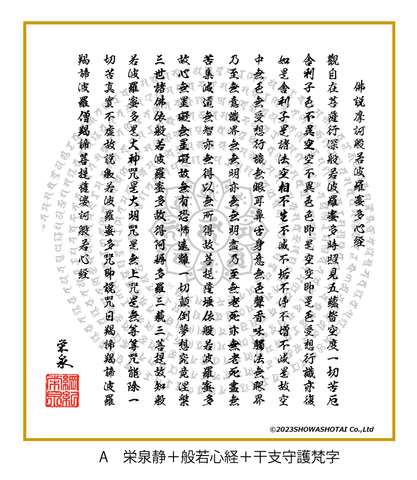 佛説摩訶般若波羅蜜多心経
觀自在菩薩行深般若波羅蜜多時照見五蘊皆空度一切苦厄
舎利子色不異空空不異色色即是空空即是色受想行識亦復
如是舎利子是諸法空相不生不滅不垢不浄不増不減是故空
中無色無受想行識無眼耳鼻舌身意無色聲香味觸法無眼界
乃至無意識界無無明亦無無明盡乃至無老死亦無老死盡無
苦集滅道無智亦無得以無所得故菩提薩埵依般若波羅蜜多
故心無罣礙無罣礙故無有恐怖遠離一切顛倒夢想究竟涅槃
三世諸佛依般若波羅蜜多故得阿耨多羅三藐三菩提故知般
若波羅蜜多是大神咒是大明咒是無上咒是無等等咒能除一
切苦真實不虚故説般若波羅蜜多咒即説咒曰羯諦羯諦波羅
羯諦波羅僧羯諦菩提薩婆訶般若心経
栄泉
©2023SHOWASHOTAI Co.,Ltd
A 栄泉静＋般若心経＋干支守護梵字